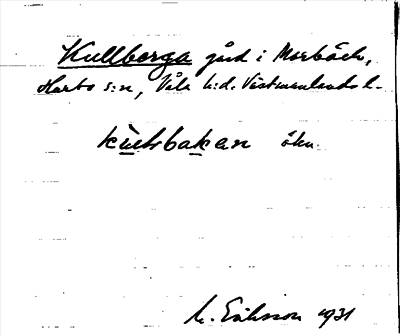 Kullberga gård i Morbäck,
Harbo s:n, Våla h:d. Västmanlands l.
kùlsbakan ökn.
M. Eriksson 1931